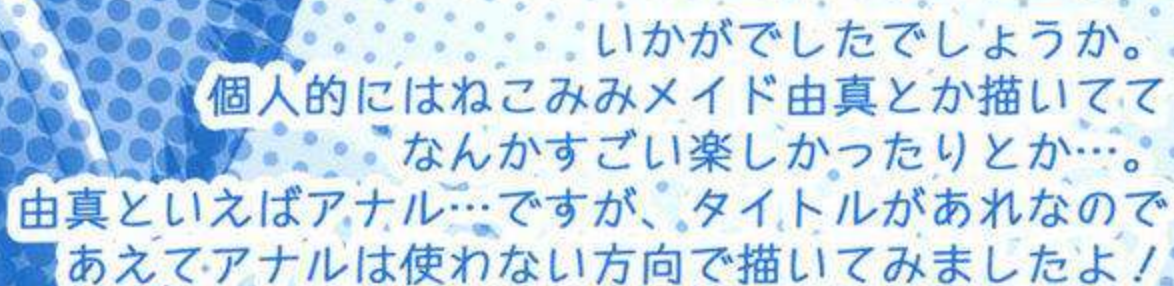 いかがでしたでしょうか。
個人的にはねこみみメイド由真とか描いてて
なんかすごい楽しかったりとか…。
由真といえばアナル…ですが、タイトルがあれなので
あえてアナルは使わない方向で描いてみましたよ！